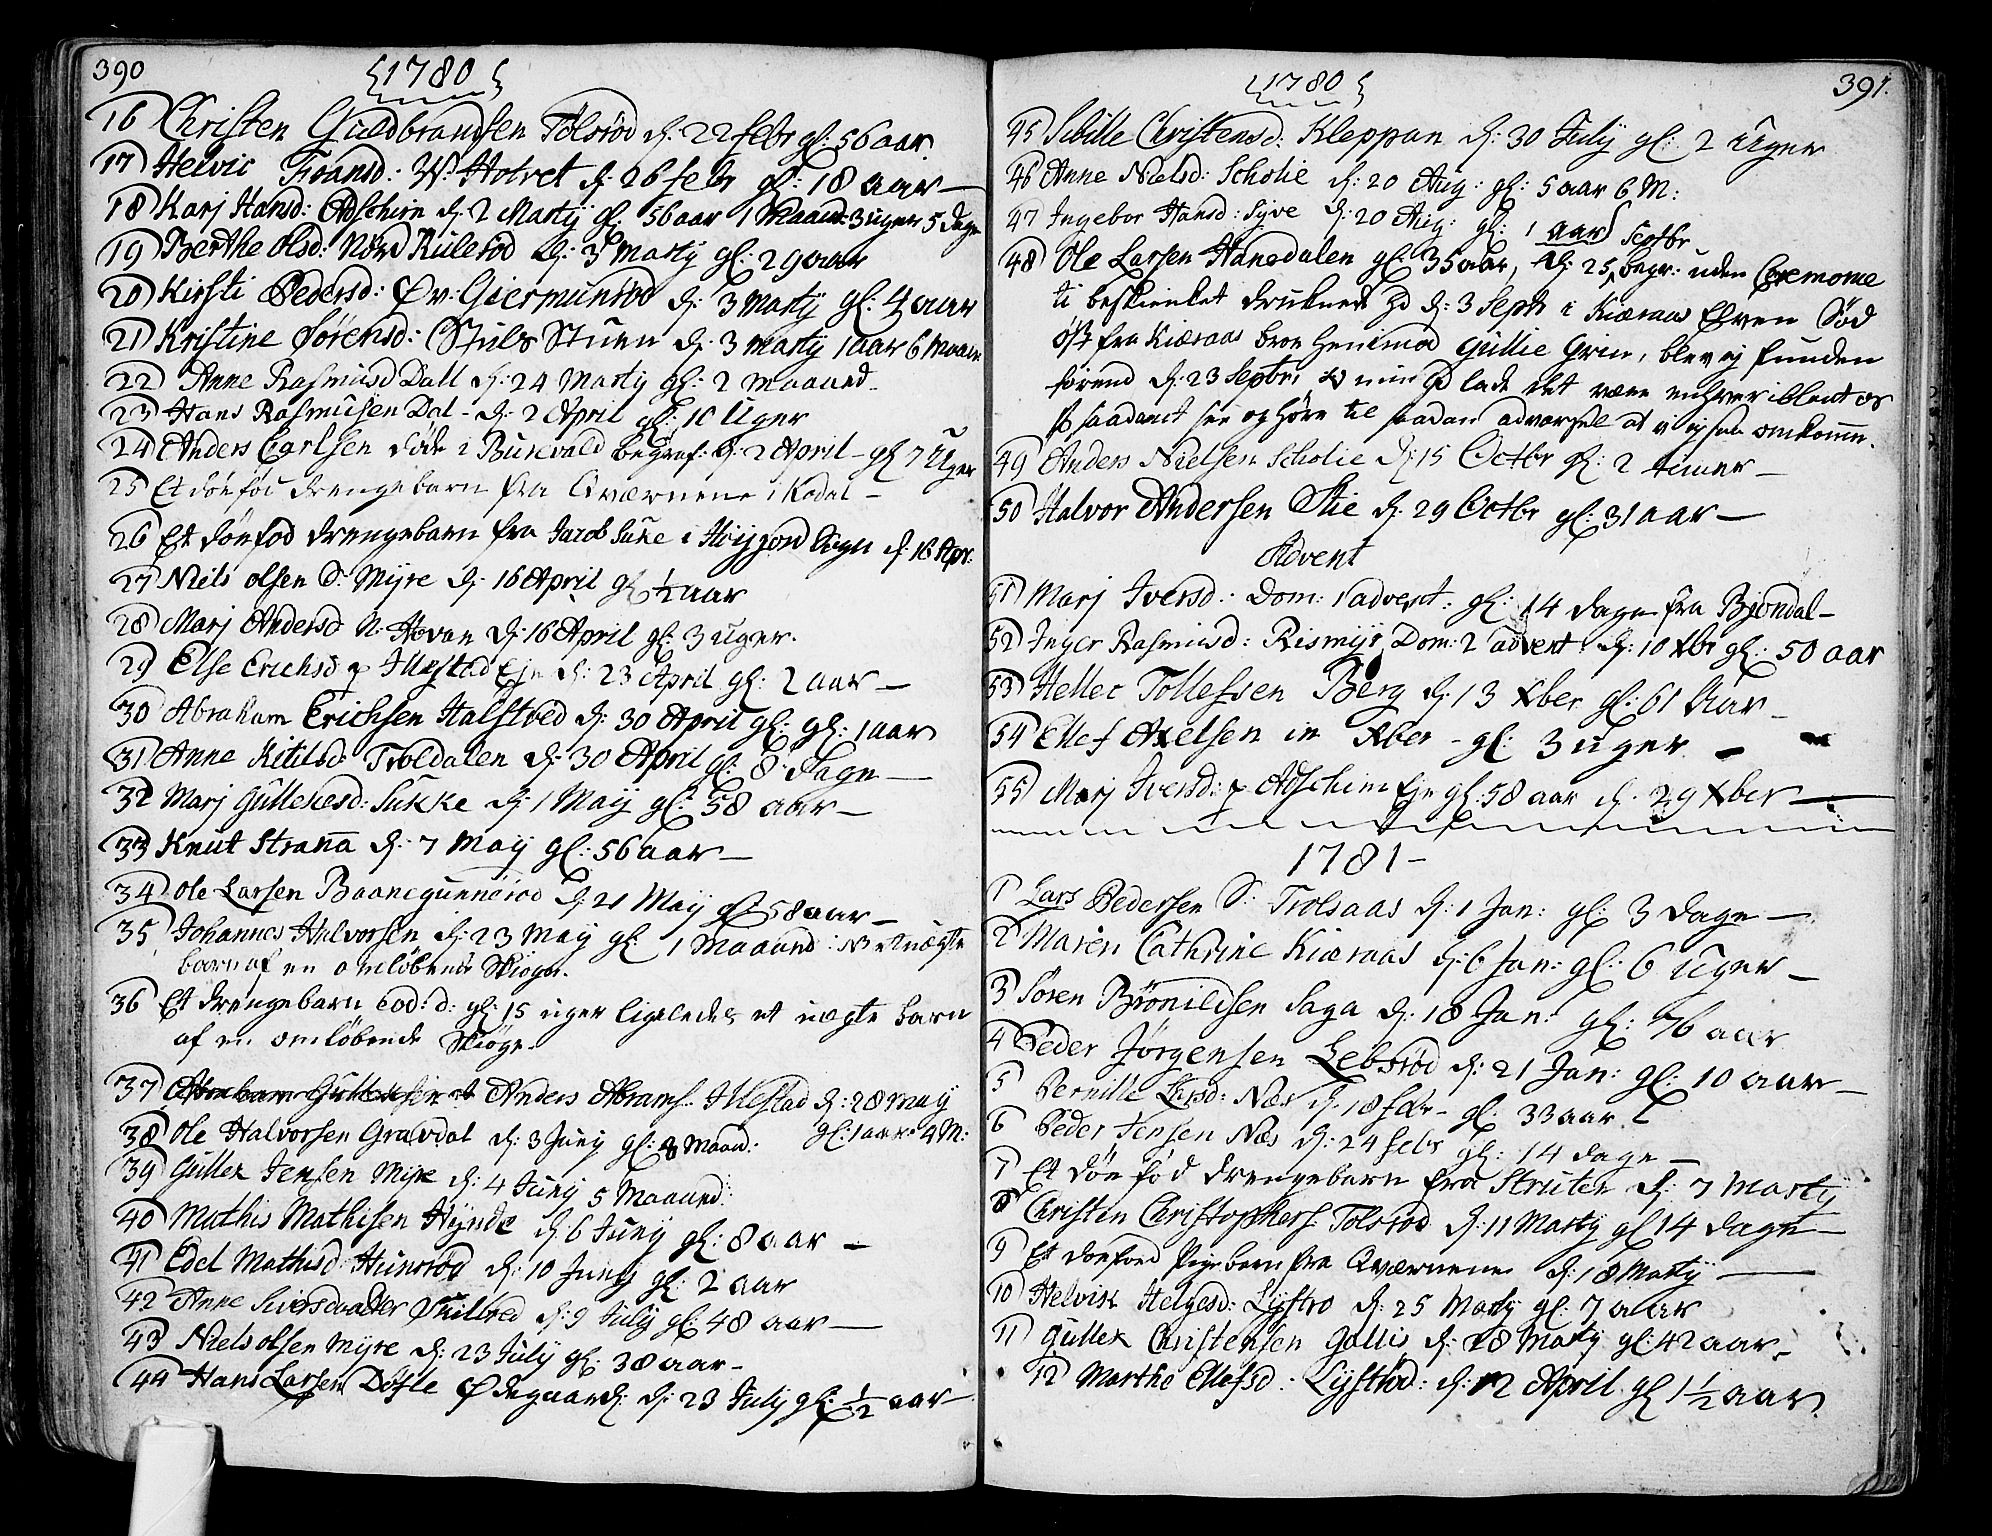 390
1780
16 Christen Guldbrandsen Tolsrød d: 22 febr gl: 56 aar.
17 Helvic Troansd: W: Holvet d: 26 febr gl: 18 aar
18 Karj Hansd: Adschim d: 2 Martij gl: 56 aar 1 Maan: 3 uger 5 dage
19 Berthe Olsd: Nor Rulesød d: 3 Martij gl: 29 aar
20 Kirsti Pedersd: Øv: Giermunsrød d: 3 Martij gl: 4 aar
21 Kristine Sørensd: Stuls Stuen d: 3 Martij 1 aar 6 Maan
22 Anne Rasmusd Dall d: 24 Martij gl: 2 Maaned
23 Hans Rasmusen Dal d: 2 April gl: 10 Uger
24 Anders Carlsen død i Burevald begraf: d: 2 April gl 7 Uger
25 Et dønfød drengebarn fra Qværnene i Kodal
26 Et dønfød drengebarn fra Jacob Suke i Høyjord Sogn d: 16 Apr:
27 Niels Olsen S: Myre d: 16 April gl 1/2 aar
28 Marj Andersd N: Hovan d: 16 April gl: 3 uger.
29 Else Erichsd p Illestad Eje d: 23 April gl: 2 aar
30 Abraham Erichsen Halstved d: 30 April gl: gl: 1 aar
31 Anne Kitilsd: Troldalen d: 30 April gl: 8 Dage
32 Marj Gullichsd: Sukke d: 1 Maij gl: 58 aar
33 Knut Stranna d: 7 Maij gl: 56 aar
34 Ole Larsen Baanegunnerød d: 21 Maij gl: 58 aar
35 Johannes Halvorsen d: 23 Maij gl: 1 Maaned: NB et uægte
barn af en omløbende Skiøge.
36 Et drengebarn eod: d: gl: 15 uger ligeledes et uægte barn
af en omløbende Skiøge.
37 Anders Abrams: Illestad d: 28 Maij
gl: 1 aar 4 M:
38 Ole Halvorsen Gravdal d: 3 Junij gl: 8 Maan:
39 Gullek Jensen Myre d: 4 Junij 5 Maaned:
40 Mathis Mathisen Hynde d: 6 Junij gl: 8 aar
41 Edel Mathisd: Hunsrød d: 10 Junij gl: 2 aar
42 Anne Siversdaatter d: 9 Julij gl: 48 aar
43 Niels Olsen Myre d: 23 Julij gl: 38 aar
44 Hans Larsen Døfle Ødegaard: d: 23 Julij gl: 1/2 aar
391.
1780
45 Sibille Christensd: Kleppan d: 30 Julij gl: 2 Uger
46 Anne Nielsd: Scholie d: 20 Aug: gl: 5 aar 6 M:
47 Ingebor Hansd: Syve d: 20 Aug: gl: 1 aar
48 Ole Larsen Hanedalen gl: 35 aar, d: 25 Septbr begr: uden Ceremonie
ti beskienket druknede d: 3 Septr i Kiæraas Elven Sød
øst fra Kiæraas broe henimod Gullie Grin, blev ej funden
førend d: 23 Septbr, min lade det være enhver iblant os
saadant see og høre til saadan advarsel at vi ej saa omkomme.
49 Anders Nielsen Scholie d: 15 Octbr gl: 2 timer
50 Halvor Andersen Stie d: 29 Octbr gl: 31 aar
Advent
51 Marj Iversd: Dom: 1 advent: gl: 14 dage fra Bjøndal
52 Inger Rasmusd: Rismyr Dom: 2 advent: d: 10 Xbr gl: 50 aar
53 Hellec Tollefsen Berg d: 13 Xber gl: 61 Aar
54 Ellef Axelsen in Xber gl: 3 uger.
55 Marj Iversd: p Adschim Eje gl: 58 aar d: 29 Xber
1781
1 Lars Pedersen S: Trolsaas d: 1 Jan: gl: 3 dage
2 Maren Cathrine Kiæraas d: 6 Jan: gl: 6 Uger
3 Søren Brønildsen Saga d: 18 Jan: gl: 76 aar
4 Peder Jørgensen Lebsrød d: 21 Jan: gl: 10 aar
5 Pernille Larsd: Næs d: 18 febr gl: 33 aar.
6 Peder Jensen Næs d: 24 febr gl: 14 dage
7 Et døn fød drengebarn fra Struten d: 7 Martij
8 Christen Christophers: Tolsrød d: 11 Martij gl 14 dage
9 Et dønføed Pigebarn fra Qværnene d: 18 Martij
10 Helvik Helgesd: Lystrø d: 25 Martij gl: 7 aar
11 Gullek Christensen Gallis d: 28 Martij gl: 42 aar
12 Marthe Ellefsd: Lystrød: d: 12 April gl 1 1/2 aar.